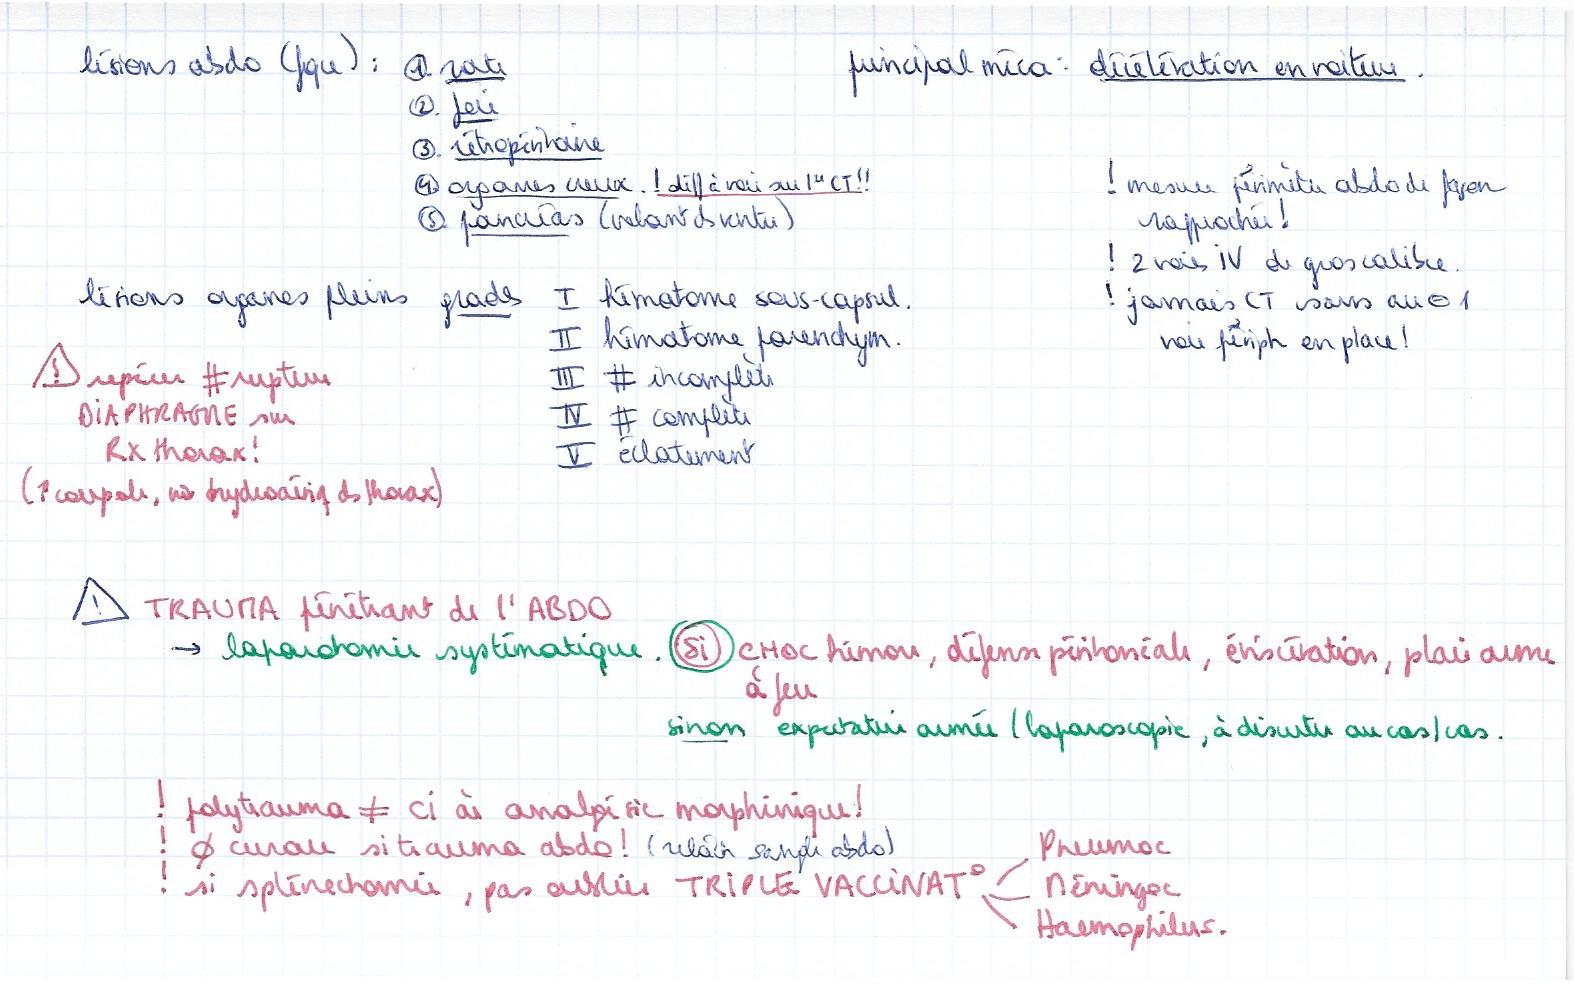 lésions abdo (fqce) : ① rate
② foie
③ rétropéritoine
④ organes creux. ! diff à voir sur 1er CT!!
⑤ pancréas (volant ds ventre)
principal méca : décélération en voiture.
! mesurer périmètre abdo de façon
rapprochée!
! 2 voies IV de gros calibre.
! jamais CT sans au ⊖ 1
voie périph en place!
lésions organes pleins grades I hématome sous-capsul.
II hématome parenchym.
III # incomplète
IV # complète
V éclatement
⚠ repérer # rupture
DIAPHRAGME sur
RX thorax!
(↑ coupole, niv hydroaériq ds thorax)
⚠ TRAUMA pénétrant de l'ABDO
→ laparotomie systématique. Si CHOC hémorr, défense péritonéale, éviscération, plaie arme
à feu
sinon expectative armée / laparoscopie, à discuter au cas/cas.
! polytrauma ≠ CI à analgésie morphinique!
! ∅ curare si trauma abdo! (relâch sangle abdo)
! si splénectomie, pas oublier TRIPLE VACCINAT°
Pneumoc
Méningoc
Haemophilus.